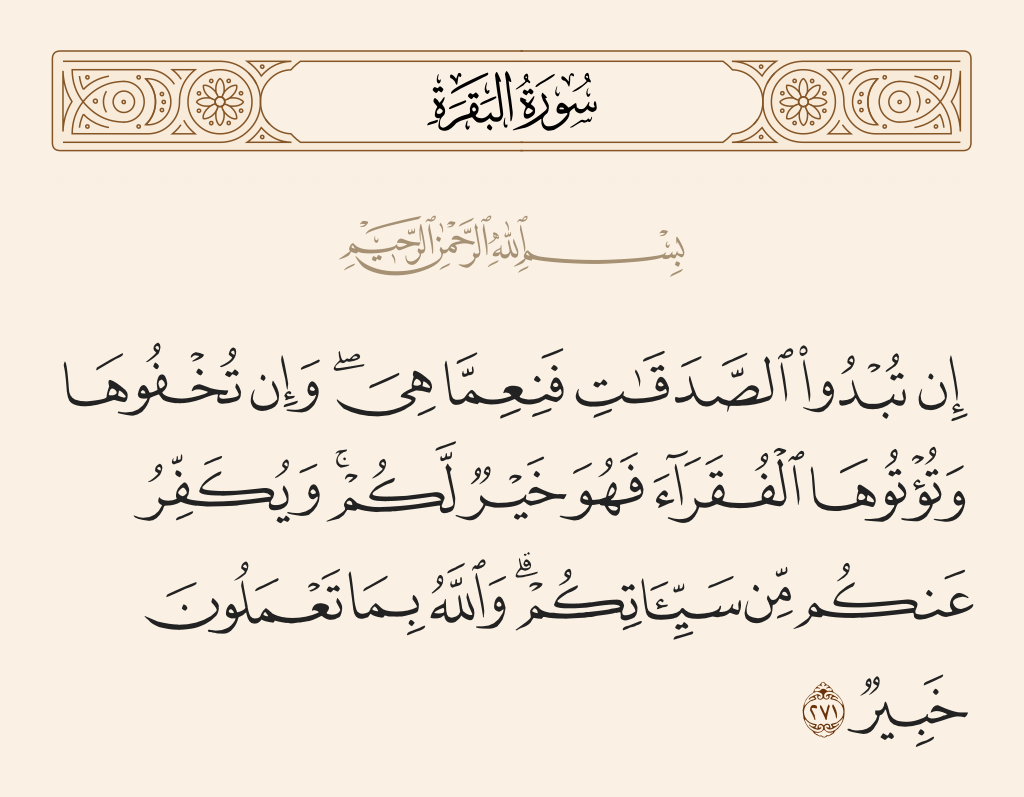 سُورَةُ البَقَرَةِ
بِسْمِ ٱللَّهِ ٱلرَّحْمَٰنِ ٱلرَّحِيمِ
إِن تُبْدُوا۟ ٱلصَّدَقَـٰتِ فَنِعِمَّا هِىَ ۖ وَإِن تُخْفُوهَا
وَتُؤْتُوهَا ٱلْفُقَرَآءَ فَهُوَ خَيْرٌ لَّكُمْ ۚ وَيُكَفِّرُ
عَنكُم مِّن سَيِّـَٔاتِكُمْ ۗ وَٱللَّهُ بِمَا تَعْمَلُونَ
خَبِيرٌ ٢٧١